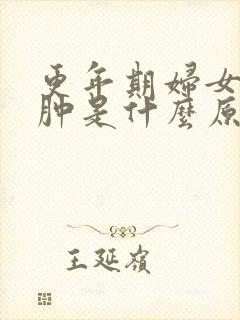 更年期婦女
肿是什麼原
王延嶺